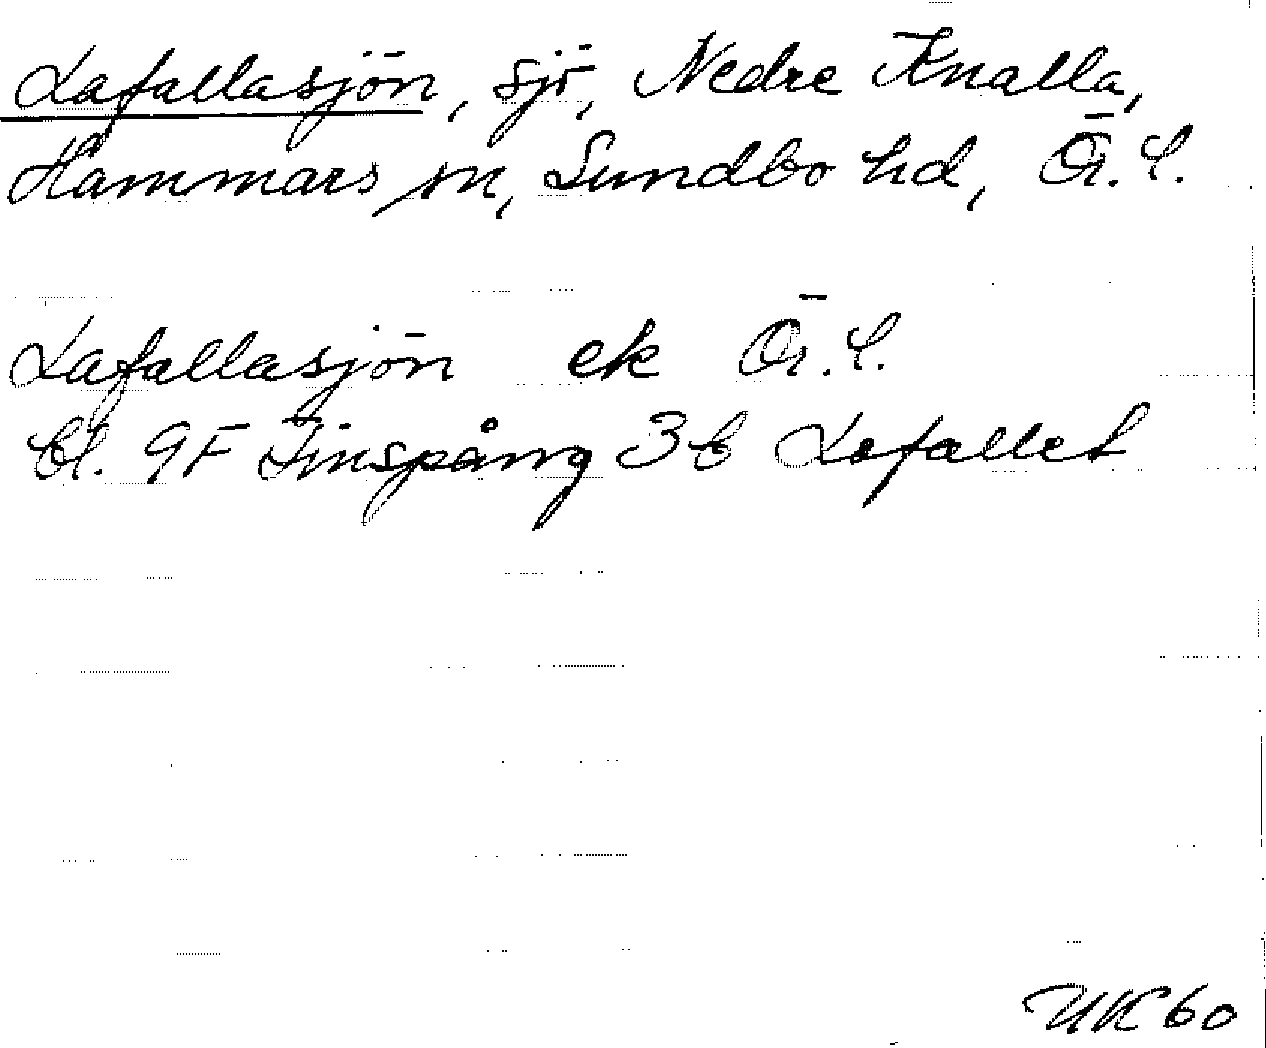 Lafallasjön, sjö, Nedre Knalla,
Hammars sn, Sundbo hd, Ö.l.
Lafallasjön ek Ö.l.
bl. 9F Finspång 3b Lafallet
UK 60